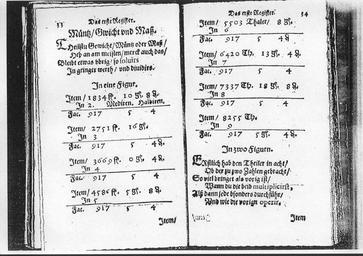 33
Das erste Register.
Müntz/Gewicht vnd Maß.
Theilstu Gewicht/Müntz oder Maß/
Heb an am meisten/merck auch das/
Bleibt etwas übrig/so soluirs
In geringer werth/vnd diuidirs.
In eine Figur.
Item/1834 fl. 10 ß. 8 ₰.
In 2. Mediren. Halbiren.
Fac. 917 5 4
Item/2751 fl. 16 ß.
In 3
Fac. 917 5 4
Item/3669 fl. 0 ß. 4 ₰.
In 4
Fac. 917 5 4
Item/4586 fl. 5 ß. 8 ₰.
In 5
Fac. 917 5 4
Item/
Das erste Register. 34
Item/5503 Thaler/8 gr.
In 6
Fac. 917 5 4 ₰.
Item/6420 Th. 13 gr. 4 ₰.
In 7
Fac. 917 5 4
Item/7337 Th. 18 gr. 8 ₰.
In 8
Fac. 917 5 4
Item/8255 Th.
In 9
Fac. 917 5 gr. 4 ₰.
In zwo Figuren.
Erstlich hab den Theiler in acht/
Ob der zu zwo Zahlen gebracht/
So viel bringet als vorig ist/
Wann du die beid multiplicirst/
Alß dann jede bsonders durchführ/
Und wie die vorign operir.
Item